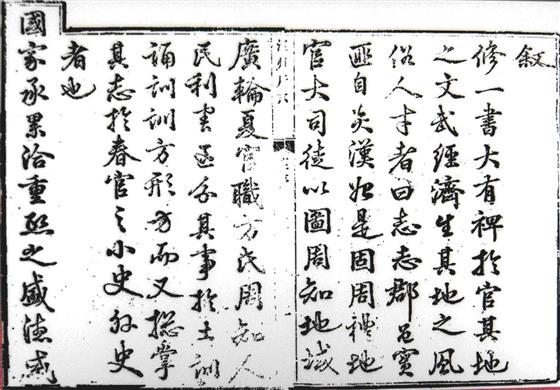 叙
修一書大有裨於官其地
之文武經濟生其地之風
俗人才者曰志志郡邑實
匪自炎漢始是固周禮地
官大司徒以圖周知地域
廣輪夏官職方氏周知人
民利害分其事於土訓
誦訓訓方形方而又摠掌
其志於春官之小史外史
者也
國家承累洽重熙之盛德威